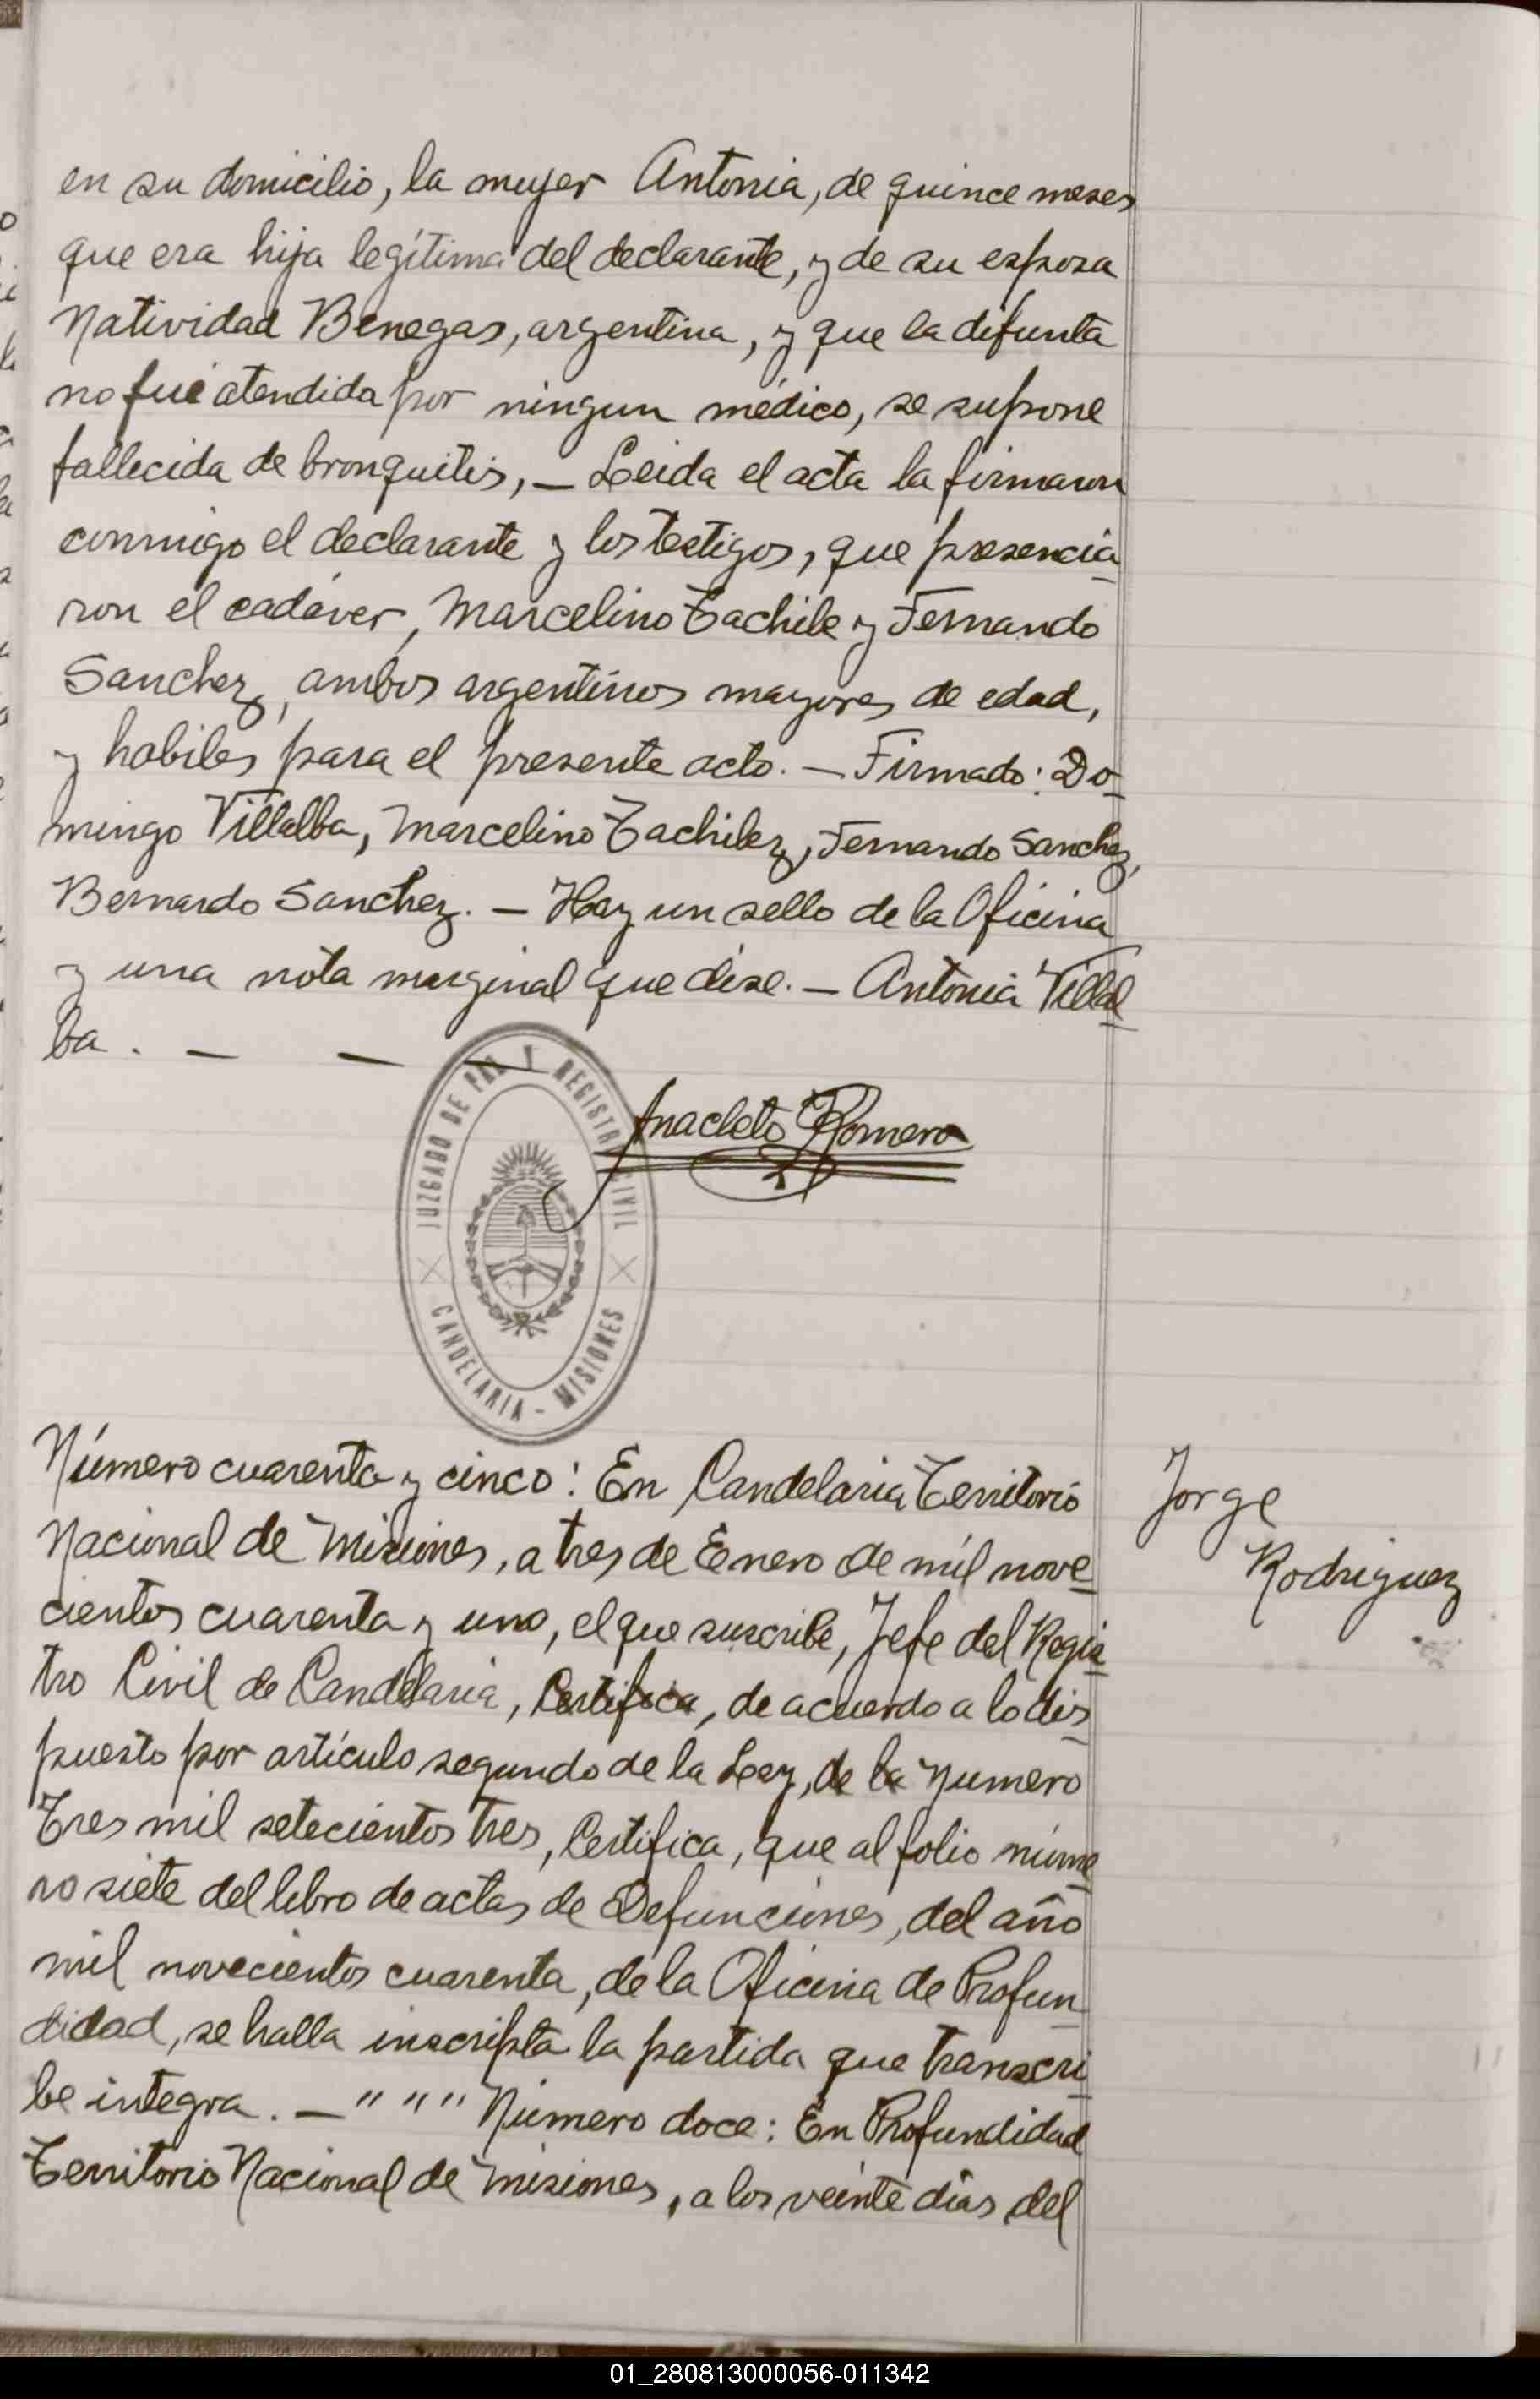 en su domicilio, la mujer Antonia, de quince meses
que era hija legítima del declarante, y de su esposa
Natividad Benegas, argentina, y que la difunta
no fué atendida por ningun médico, se supone
fallecida de bronquitis, — Leida el acta la firmaron
conmigo el declarante y los testigos, que presencia
ron el cadáver, Marcelino Tachile y Fernando
Sanchez, ambos argentinos mayores de edad,
y habiles para el presente acto. — Firmado: Do
mingo Villalba, Marcelino Tachilez, Fernando Sanchez,
Bernardo Sanchez. — Hay un sello de la Oficina
y una nota marginal que dise. — Antonia Villal
ba. — — —
JUZGADO DE PAZ Y REGISTRO CIVIL
CANDELARIA - MISIONES
Anacleto Romero
Número cuarenta y cinco: En Candelaria Territorio
Nacional de Misiones, a tres de Enero de mil nove
cientos cuarenta y uno, el que suscribe, Jefe del Regis
tro Civil de Candelaria, Certifica, de acuerdo a lo dis
puesto por artículo segundo de la Ley, de la Numero
Tres mil setecientos tres, Certifica, que al folio núme
ro siete del libro de actas de Defunciones, del año
mil novecientos cuarenta, de la Oficina de Profun
didad, se halla inscripta la partida que transcri
be integra. — " " " Número doce: En Profundidad
Territorio Nacional de Misiones, a los veinte días del
Jorge
Rodriguez
01_280813000056-011342